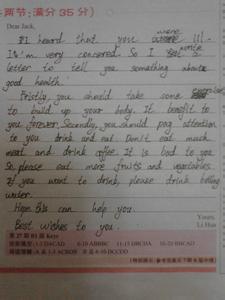 两节;满分35分)
Dear Jack,
I heard that you were ill.
I'm very concered. So I write
letter to tell you something about
good health.
Fristly you should take some exercise
to build up your body. It benefit to
you forever. Secondy, you should pag attention
to you drink and eat. Don't eat much
meat and drink coffee. It is bad to you.
So please eat more fruits and vegetables.
If you want to drink, please drink boiling
water.
Hope this can help you.
Best wishes to you.
Yours,
Li Hua
第27期B1版Keys
1-5 DACAD 6-10 ABBBC 11-15 DBCDA 16-20 BBCAD